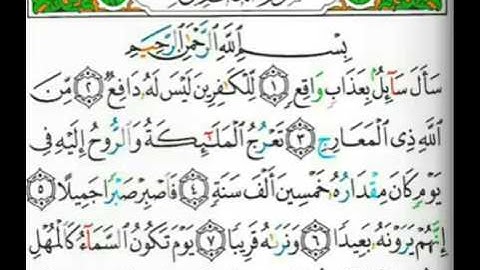 بِسْمِ اللَّهِ الرَّحْمَٰنِ الرَّحِيمِ
سَأَلَ سَآئِلٌۢ بِعَذَابٍ وَاقِعٍ ﴿١﴾ لِّلْكَٰفِرِينَ لَيْسَ لَهُۥ دَافِعٌ ﴿٢﴾ مِّنَ
ٱللَّهِ ذِى ٱلْمَعَارِجِ ﴿٣﴾ تَعْرُجُ ٱلْمَلَٰٓئِكَةُ وَٱلرُّوحُ إِلَيْهِ فِى
يَوْمٍ كَانَ مِقْدَارُهُۥ خَمْسِينَ أَلْفَ سَنَةٍ ﴿٤﴾ فَٱصْبِرْ صَبْرًا جَمِيلًا ﴿٥﴾
إِنَّهُمْ يَرَوْنَهُۥ بَعِيدًا ﴿٦﴾ وَنَرَىٰهُ قَرِيبًا ﴿٧﴾ يَوْمَ تَكُونُ ٱلسَّمَآءُ كَٱلْمُهْلِ